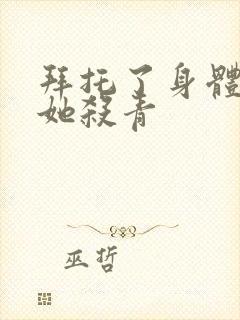 拜托了身體
她殺青
巫哲